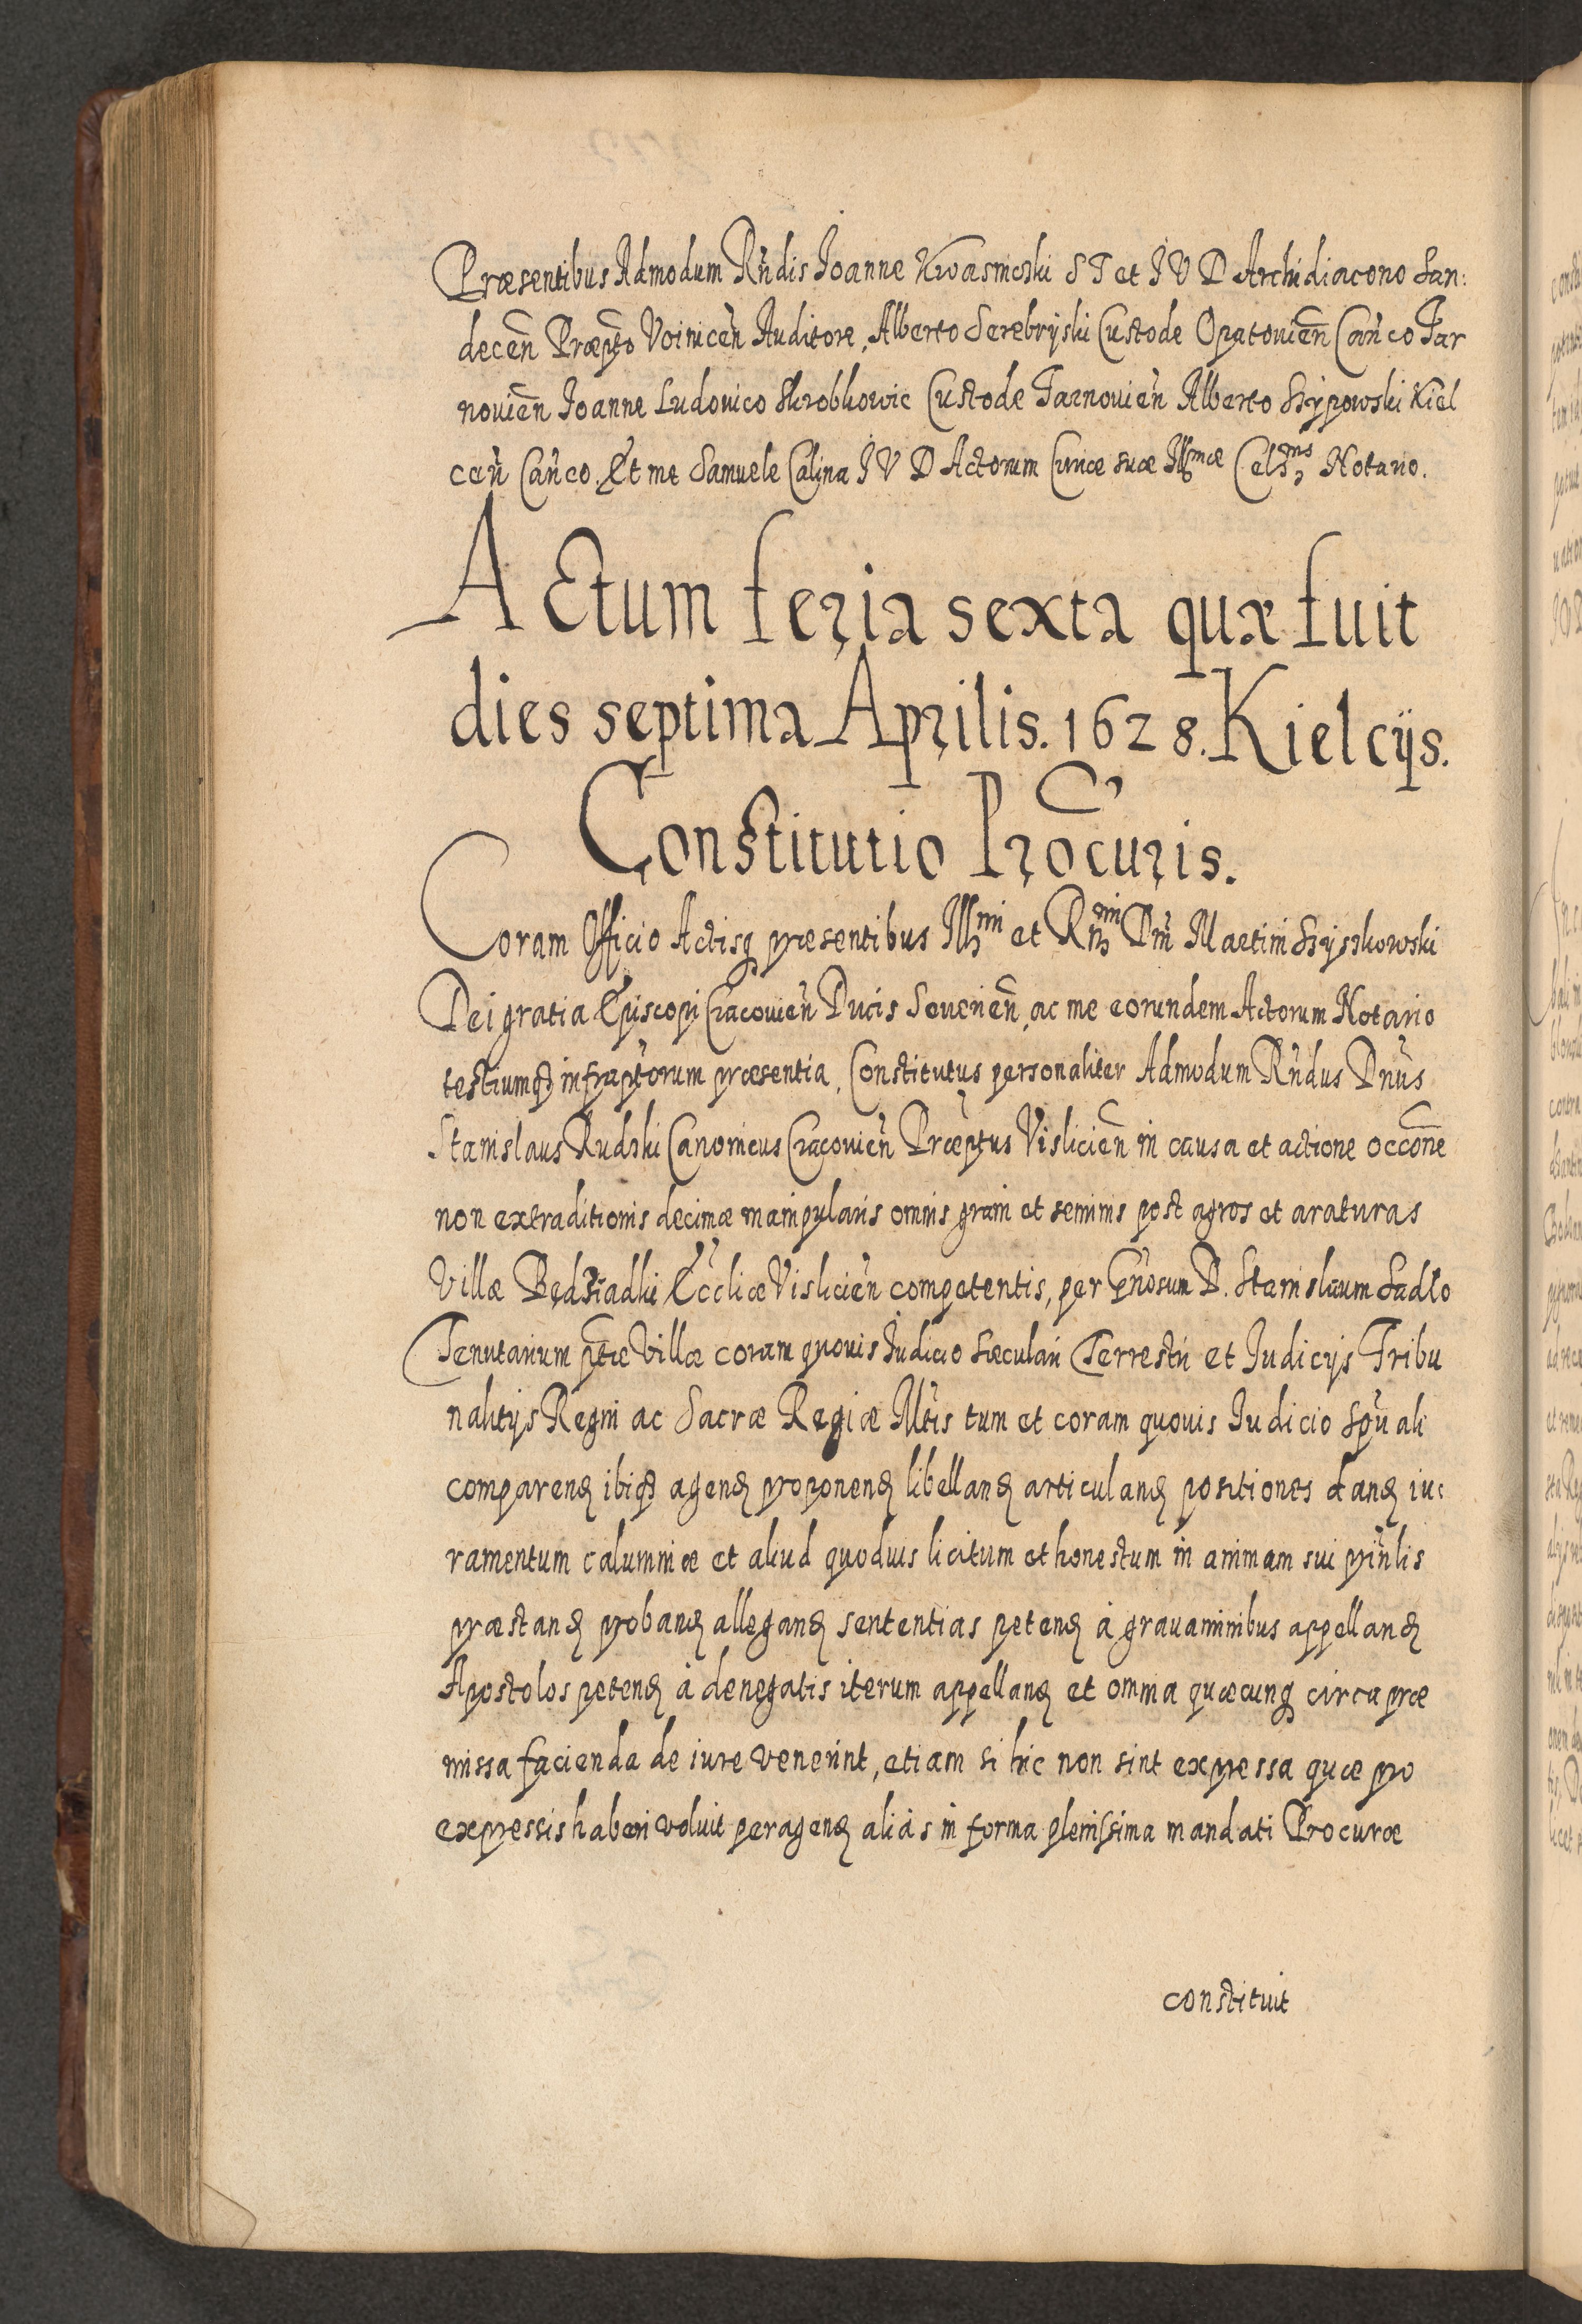 Præsentibus Admodum Rñdis Joanne Kwasnioski S T et J V D Archidiacono San:
decen̄ Præpto Voinicen̄ Auditore, Alberto Serebryski Custode Opatouien̄ Can̄co Tar
nouien̄ Joanne Ludouico Skrobkowic Custode Tarnouien̄ Alberto Szypowski Kiel
cen̄ Can̄co. Et me Samuele Calina J V D Actorum Curiæ suæ Illmæ Celsms Notario.
Actum feria sexta quæ fuit
dies septima Aprilis. 1628. Kielcijs.
Constitutio Procuris.
Coram Officio Actisq præsentibus Illmi et Rmi Dni Martini Szyszkowski
Dei gratia Episcopi Cracouien̄ Ducis Seuerien̄, ac me eorundem Actorum Notario
testiumq infraptorum præsentia, Constitutus personaliter Admodum Rñdus Dñus
Stanislaus Rudzki Canonicus Cracouien̄ Præptus Vislicien̄ in causa et actione occōne
non extraditionis decimæ manipularis omnis grani et seminis post agros et araturas
Villæ Bedziadki Ecc̄liæ Vislicien̄ competentis, per Gn̄osum D. Stanislaum Sadło
Tenutarium ptæ Villæ coram quouis Judicio Sæculari Terrestri et Judicijs Tribu
nalitijs Regni ac Sacræ Regiæ Mt̄is tum et coram quouis Judicio Spūali
comparend ibiq agend proponend libelland articuland positiones dand iu:
ramentum calumniæ et aliud quoduis licitum et honestum in animam sui prin̄lis
præstand proband allegand sententias petend à grauaminibus appelland
Apostolos petend à denegatis iterum appelland et omnia quæcunq circa præ
missa facienda de iure venerint, etiam si hic non sint expressa quæ pro
expressis haberi voluit peragend aliàs in forma plenissima mandati Procuræ
constituit